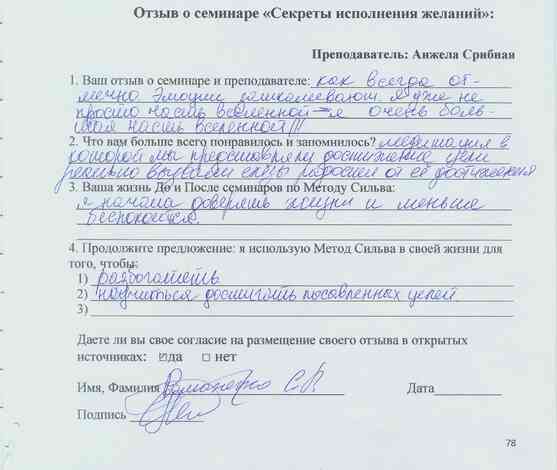 Отзыв о семинаре «Секреты исполнения желаний»:
Преподаватель: Анжела Срибная
1. Ваш отзыв о семинаре и преподавателе: как всегда от-
лично эмоции зашкаливают. Я уже не
просто часть вселенной – я очень боль-
шая часть вселенной!!!
2. Что вам больше всего понравилось и запомнилось? медитация в
которой мы представляли достижение цели
реально вызвали слёзы радости от её достижения
3. Ваша жизнь До и После семинаров по Методу Сильва:
я начала доверять жизни и меньше
беспокоиться.
4. Продолжите предложение: я использую Метод Сильва в своей жизни для
того, чтобы:
1) разбогатеть
2) научиться достигать поставленных целей
3)
Даете ли вы свое согласие на размещение своего отзыва в открытых
источниках: ☑да □ нет
Имя, Фамилия С.Л. Дата
Подпись
78